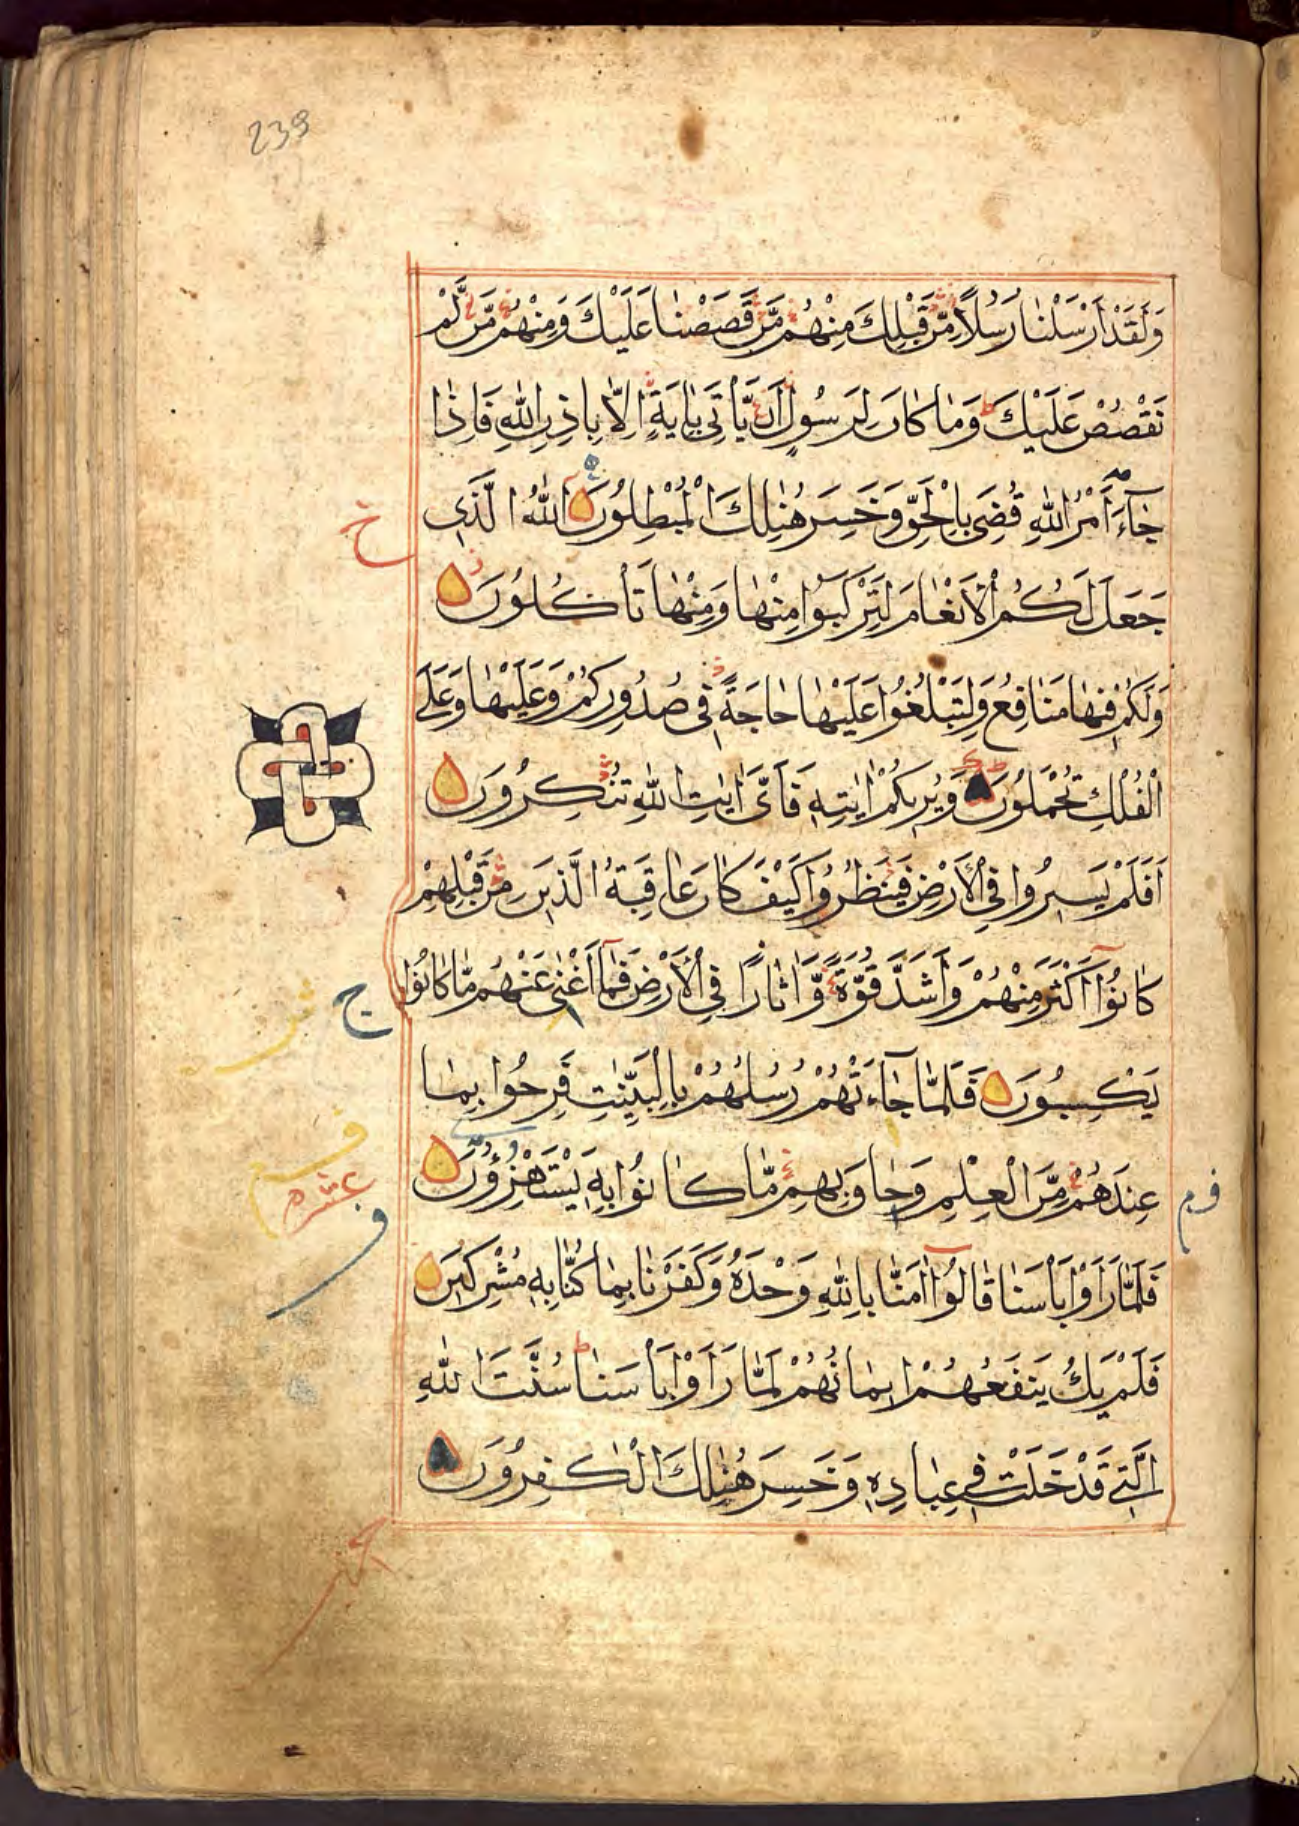 239
وَلَقَدْ أَرْسَلْنَا رُسُلًا مِّن قَبْلِكَ مِنْهُم مَّن قَصَصْنَا عَلَيْكَ وَمِنْهُم مَّن لَّمْ
نَقْصُصْ عَلَيْكَ ط وَمَا كَانَ لِرَسُولٍ أَن يَّأْتِىَ بِاٰيَةٍ اِلَّا بِاِذْنِ اللّٰهِ فَاِذَا
جَآءَ أَمْرُ اللّٰهِ قُضِىَ بِالْحَقِّ وَخَسِرَ هُنَالِكَ الْمُبْطِلُونَ اللّٰهُ الَّذِى
جَعَلَ لَكُمُ الْأَنْعَامَ لِتَرْكَبُوا مِنْهَا وَمِنْهَا تَأْكُلُونَ
وَلَكُمْ فِيهَا مَنَافِعُ وَلِتَبْلُغُوا عَلَيْهَا حَاجَةً فِى صُدُورِكُمْ وَعَلَيْهَا وَعَلَى
الْفُلْكِ تُحْمَلُونَ وَيُرِيكُمْ اٰيٰتِهٖ فَأَىَّ اٰيٰتِ اللّٰهِ تُنْكِرُونَ
أَفَلَمْ يَسِيرُوا فِى الْأَرْضِ فَيَنظُرُوا كَيْفَ كَانَ عَاقِبَةُ الَّذِينَ مِن قَبْلِهِمْ
كَانُوٓا أَكْثَرَ مِنْهُمْ وَأَشَدَّ قُوَّةً وَّاٰثَارًا فِى الْأَرْضِ فَمَآ أَغْنٰى عَنْهُم مَّا كَانُوا
يَكْسِبُونَ فَلَمَّا جَآءَتْهُمْ رُسُلُهُمْ بِالْبَيِّنٰتِ فَرِحُوا بِمَا
عِندَهُم مِّنَ الْعِلْمِ وَحَاقَ بِهِم مَّا كَانُوا بِهٖ يَسْتَهْزِؤُنَ
فَلَمَّا رَأَوْا بَأْسَنَا قَالُوٓا اٰمَنَّا بِاللّٰهِ وَحْدَهُ وَكَفَرْنَا بِمَا كُنَّا بِهٖ مُشْرِكِينَ
فَلَمْ يَكُ يَنفَعُهُمْ اِيمَانُهُمْ لَمَّا رَأَوْا بَأْسَنَا ط سُنَّتَ اللّٰهِ
الَّتِى قَدْ خَلَتْ فِى عِبَادِهٖ وَخَسِرَ هُنَالِكَ الْكٰفِرُونَ
خ
ج
عشره